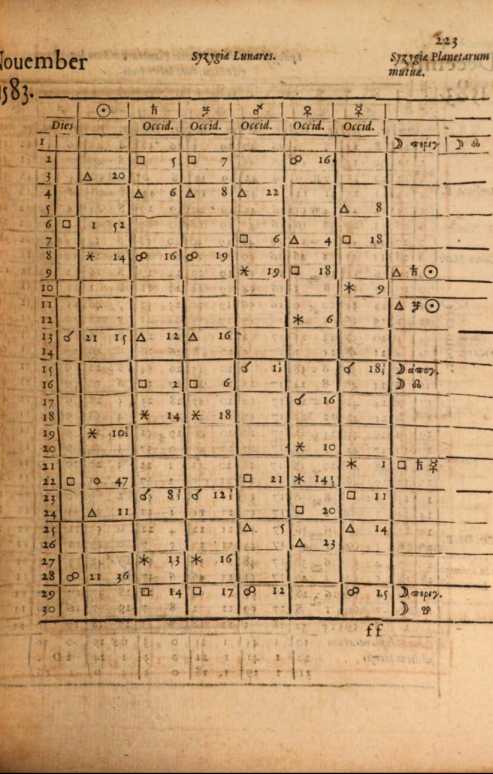 223
Nouember
1583.
Syzygiæ Lunares.
Syzygiæ Planetarum
mutuæ.
☉ ♄ ♃ ♂ ♀ ☿
Dies Occid. Occid. Occid. Occid. Occid.
1 ☽ ☽ ☊
2 □ 5 □ 7 ☍ 16
3 △ 20
4 △ 6 △ 8 △ 22
5 △ 8
6 □ 1 52
7 □ 6 △ 4 □ 18
8 ⚹ 14 ☍ 16 ☍ 19
9 ⚹ 19 □ 18 △ ♄ ☉
10 ⚹ 9
11 △ ♃ ☉
12 ⚹ 6
13 ☌ 21 15 △ 12 △ 16
14
15 ☌ ☌ 18 ☽ ἀπογ.
16 □ 2 □ 6 ☽ ☊
17 ☌ 16
18 ⚹ 14 ⚹ 18
19 ⚹ 10
20 ⚹ 10
21 ⚹ 1 □ ♄ ☿
22 □ 0 47 □ 21 ⚹ 14
23 ☌ 8 ☌ 12 □ 11
24 △ 11 □ 20
25 △ 5 △ 14
26 △ 23
27 ⚹ 13 ⚹ 16
28 ☍ 21 36
29 □ 14 □ 17 ☍ 12 ☍ 15 ☽ περιγ.
30 ☽ ☋
ff